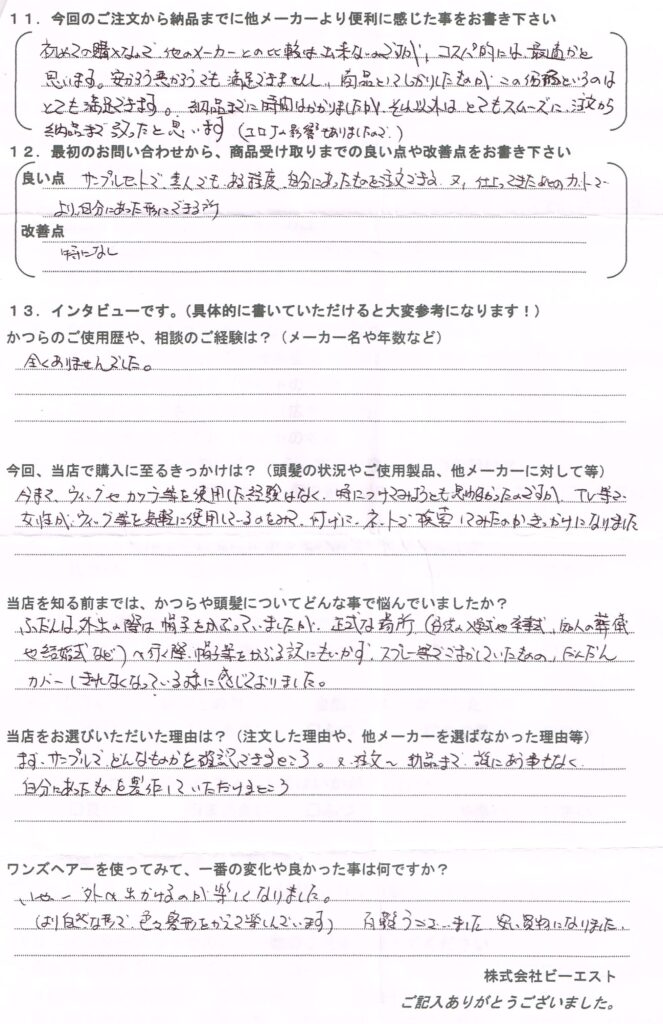 １１．今回のご注文から納品までに他メーカーより便利に感じた事をお書き下さい
初めての購入なので、他のメーカーとの比較は出来ないのですが、コスパ的には、最適かと
思います。安かろう悪かろうでも満足できませんし、商品としてしっかりしたものが、この価格というのは
とても満足できます。納品までに時間はかかりましたが、それ以外は、とてもスムーズに、注文から
納品まで 行ったと思います（コロナの影響もありましたので、）
１２．最初のお問い合わせから、商品受け取りまでの良い点や改善点をお書き下さい
良い点　サンプルセットで、素人でも、ある程度、自分にあったものを注文できる、又、仕上ってきた
より、自分にあった形にできる所
改善点
特になし
１３．インタビューです。（具体的に書いていただけると大変参考になります！）
かつらのご使用歴や、相談のご経験は？（メーカー名や年数など）
全くありませんでした。
今回、当店で購入に至るきっかけは？（頭髪の状況やご使用製品、他メーカーに対して等）
今まで、ウィッグやカツラ等を使用した経験はなく、特につけてみようとも思わなかったのですが、TV等で、
女性が、ウィッグ等を気軽に使用しているのをみて、何げに、ネットで検索してみたのがきっかけになりました
当店を知る前までは、かつらや頭髪についてどんな事で悩んでいましたか？
ふだんは、外出の際は帽子をかぶっていましたが、正式な場所（子供の入学式や卒業式、知人の葬儀
や結婚式など）へ行く際、帽子等をかぶる訳にもいかず、スプレー等でごまかしていたものの、だんだん
カバーしきれなくなっている様に感じておりました。
当店をお選びいただいた理由は？（注文した理由や、他メーカーを選ばなかった理由等）
まず、サンプルでどんなものかを確認できるところ。又、注文〜納品まで、誰にあう事もなく、
自分にあったものを製作していただけるところ
ワンズヘアーを使ってみて、一番の変化や良かった事は何ですか？
外へ出かけるのが楽しくなりました。
（より自然な形で、色々髪形をかえて楽しんでいます） 良い買物になりました、
株式会社ビーエスト
ご記入ありがとうございました。